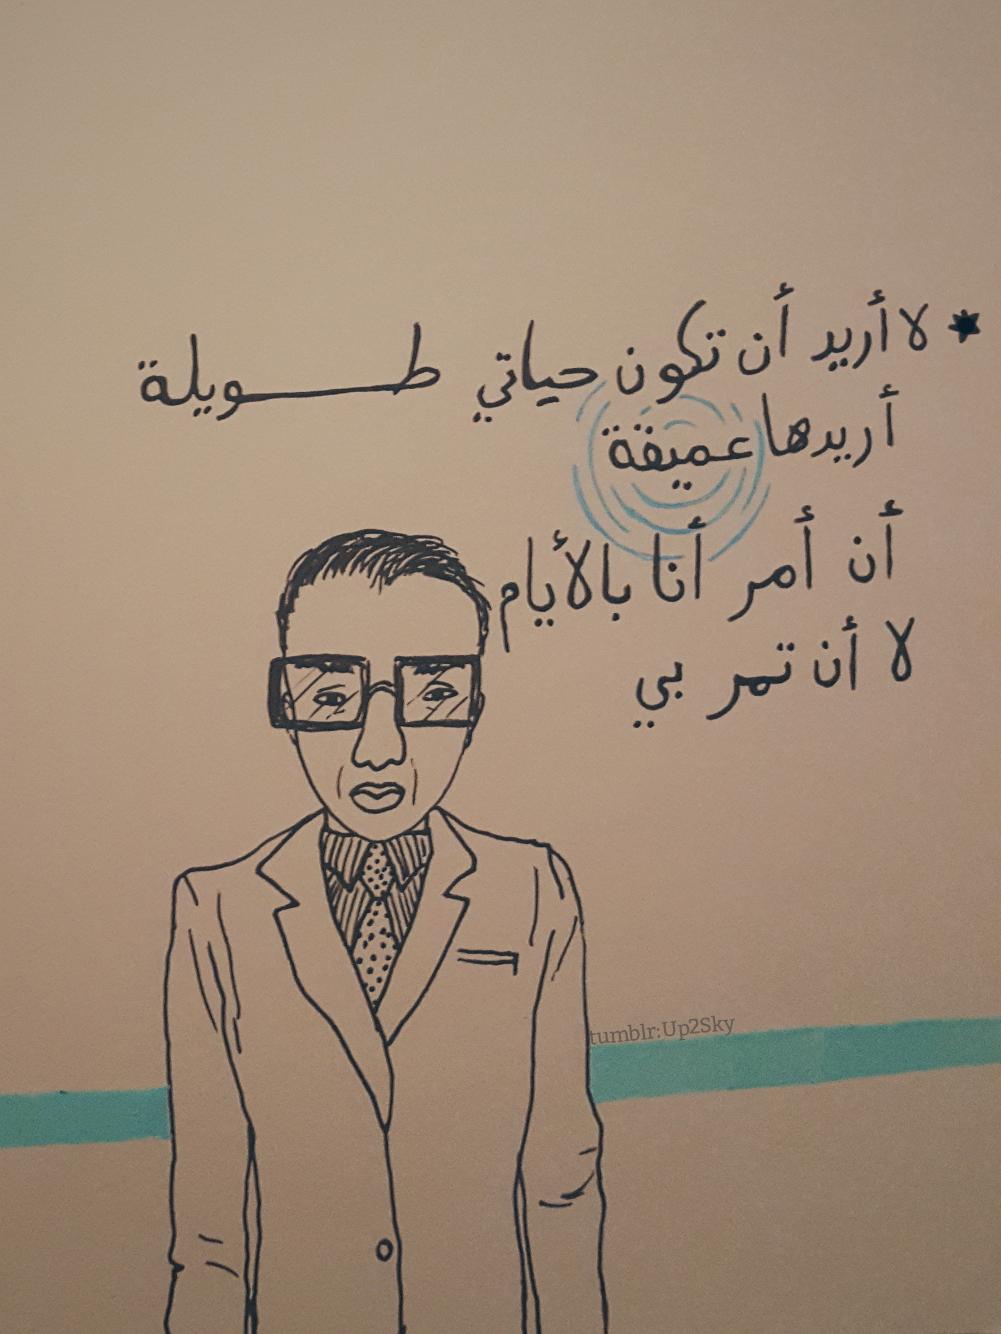 لا أريد أن تكون حياتي طـــويلة
أريدها عميقة
أن أمر أنا بالأيام
لا أن تمر بي
tumblr:Up2Sky